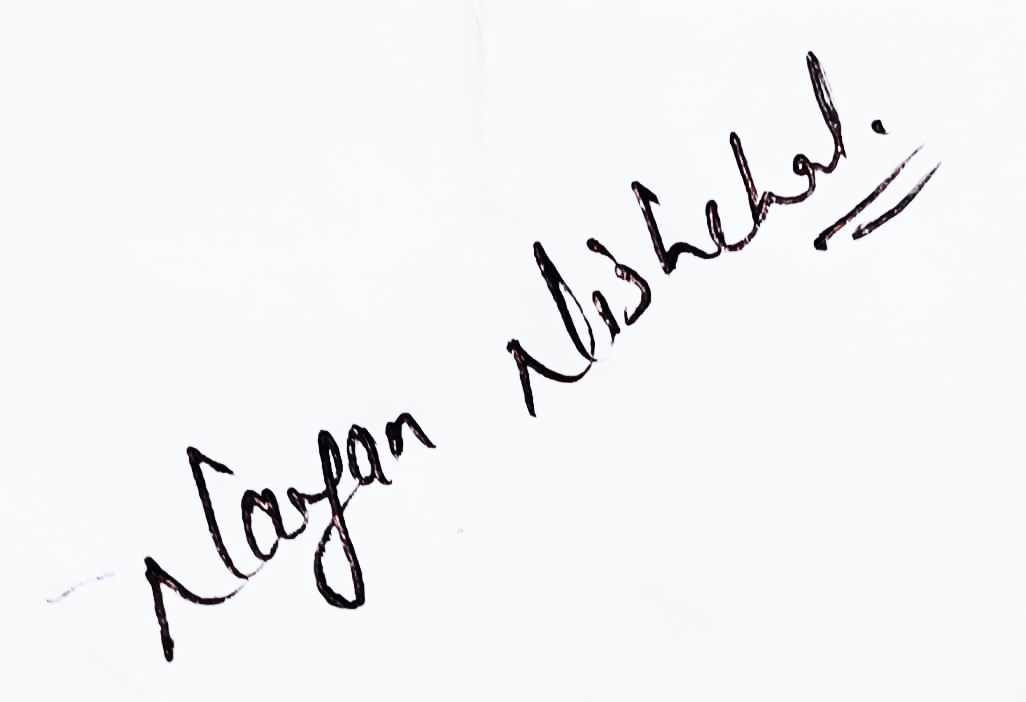 Nayan Nishchal.